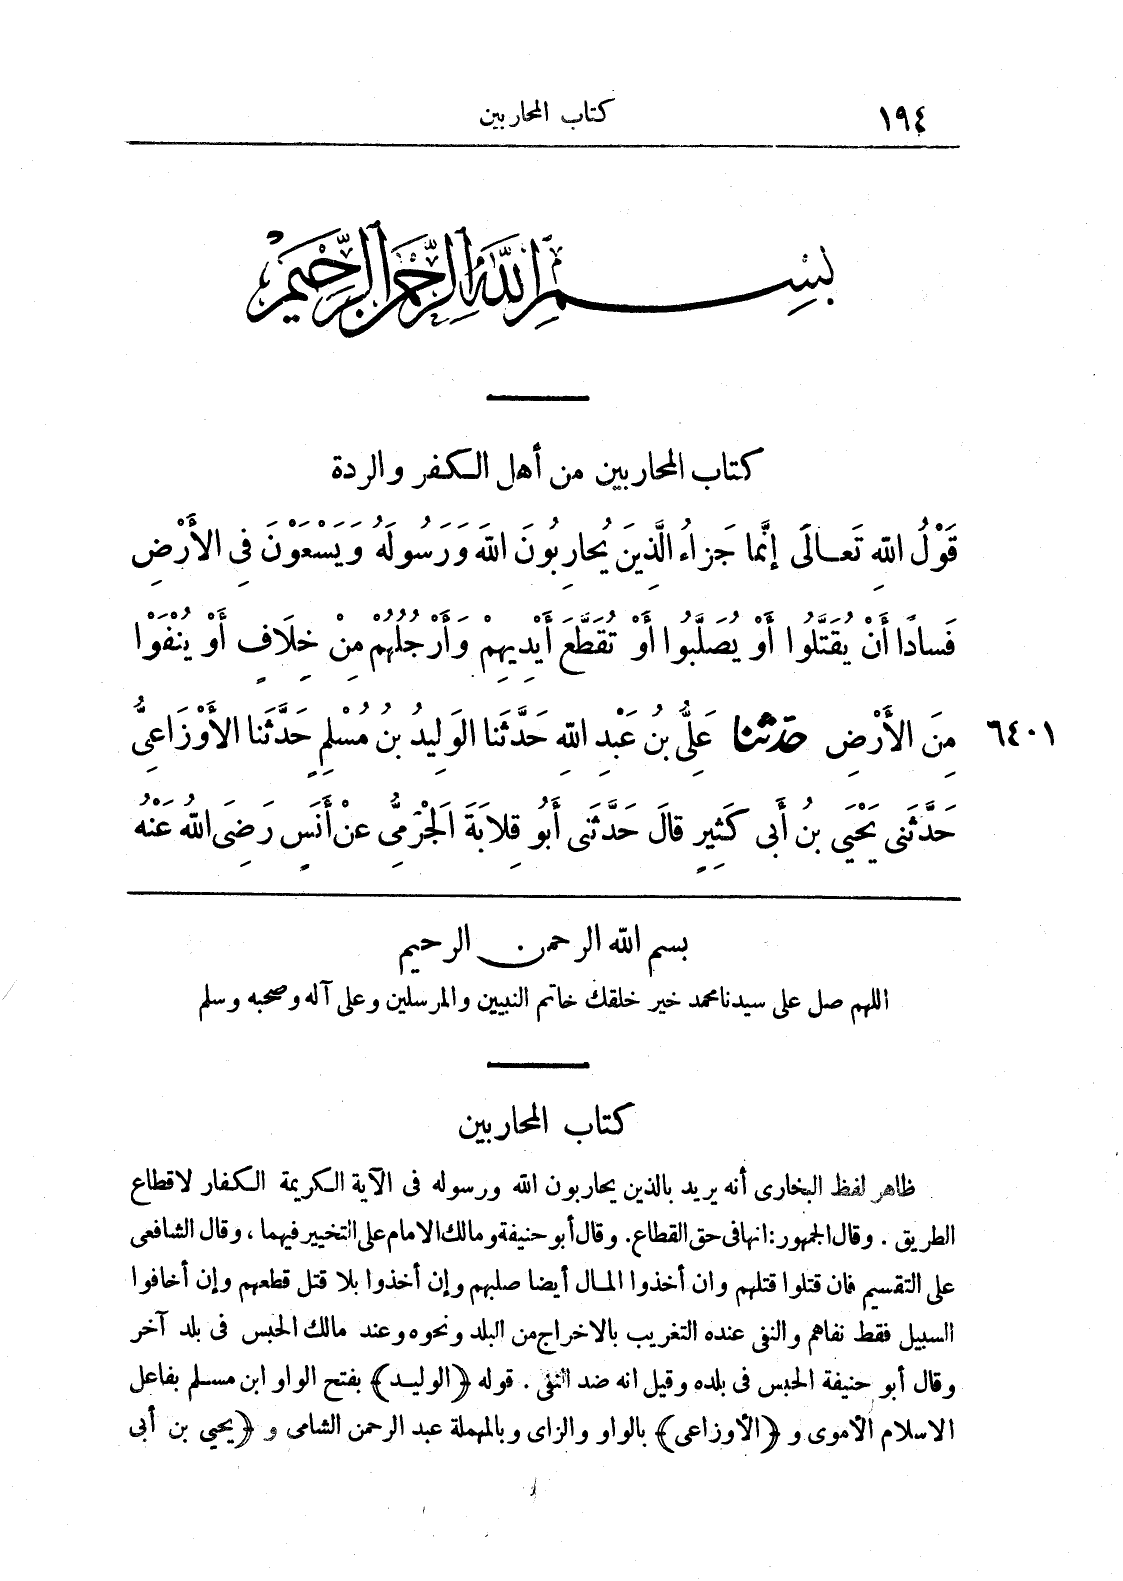 ١٩٤ كتاب المحاربين
بِسْمِ اللهِ الرَّحْمَنِ الرَّحِيمِ
كتاب المحاربين من أهل الكفر والردة
قَوْلُ اللهِ تَعَالَى إِنَّمَا جَزاءُ الَّذِينَ يُحارِبُونَ اللهَ وَرَسُولَهُ وَيَسْعَوْنَ فِى الأَرْضِ
فَسادًا أَنْ يُقَتَّلُوا أَوْ يُصَلَّبُوا أَوْ تُقَطَّعَ أَيْدِيهِمْ وَأَرْجُلُهُمْ مِنْ خِلَافٍ أَوْ يُنْفَوْا
٦٤٠١ مِنَ الأَرْضِ حَدَّثَنا عَلِىُّ بنُ عَبْدِ اللهِ حَدَّثَنا الوَلِيدُ بنُ مُسْلِمٍ حَدَّثَنا الأَوْزَاعِىُّ
حَدَّثَنِى يَحْيَى بنُ أَبِى كَثِيرٍ قالَ حَدَّثَنِى أَبُو قِلابَةَ الجَرْمِىُّ عنْ أَنَسٍ رَضِىَ اللهُ عَنْهُ
بسم الله الرحمن الرحيم
اللهم صل على سيدنا محمد خير خلقك خاتم النبيين والمرسلين وعلى آله وصحبه وسلم
كتاب المحاربين
ظاهر لفظ البخارى أنه يريد بالذين يحاربون الله ورسوله فى الآية الكريمة الكفار لاقطاع
الطريق . وقال الجمهور: انها فى حق القطاع. وقال أبو حنيفة ومالك الامام على التخيير فيهما ، وقال الشافعى
على التقسيم فان قتلوا قتلهم وان أخذوا المال أيضا صلبهم وإن أخذوا بلا قتل قطعهم وإن أخافوا
السبيل فقط نفاهم والنفى عنده التغريب بالاخراج من البلد ونحوه وعند مالك الحبس فى بلد آخر
وقال أبو حنيفة الحبس فى بلده وقيل انه ضد النفى . قوله ﴿الوليد﴾ بفتح الواو ابن مسلم بفاعل
الاسلام الأموى و ﴿الأوزاعى﴾ بالواو والزاى وبالمهملة عبد الرحمن الشامى و ﴿يحيى بن أبى